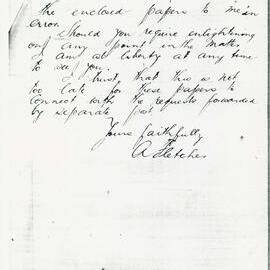 the enclosed papers to me in
error. Should you require enlightening
on any point in the matter
I am at liberty at any time
to see you.
I trust, that this is not
too late for these papers to
connect with the requests forwarded
by separate post
Yours faithfully
A Fletcher